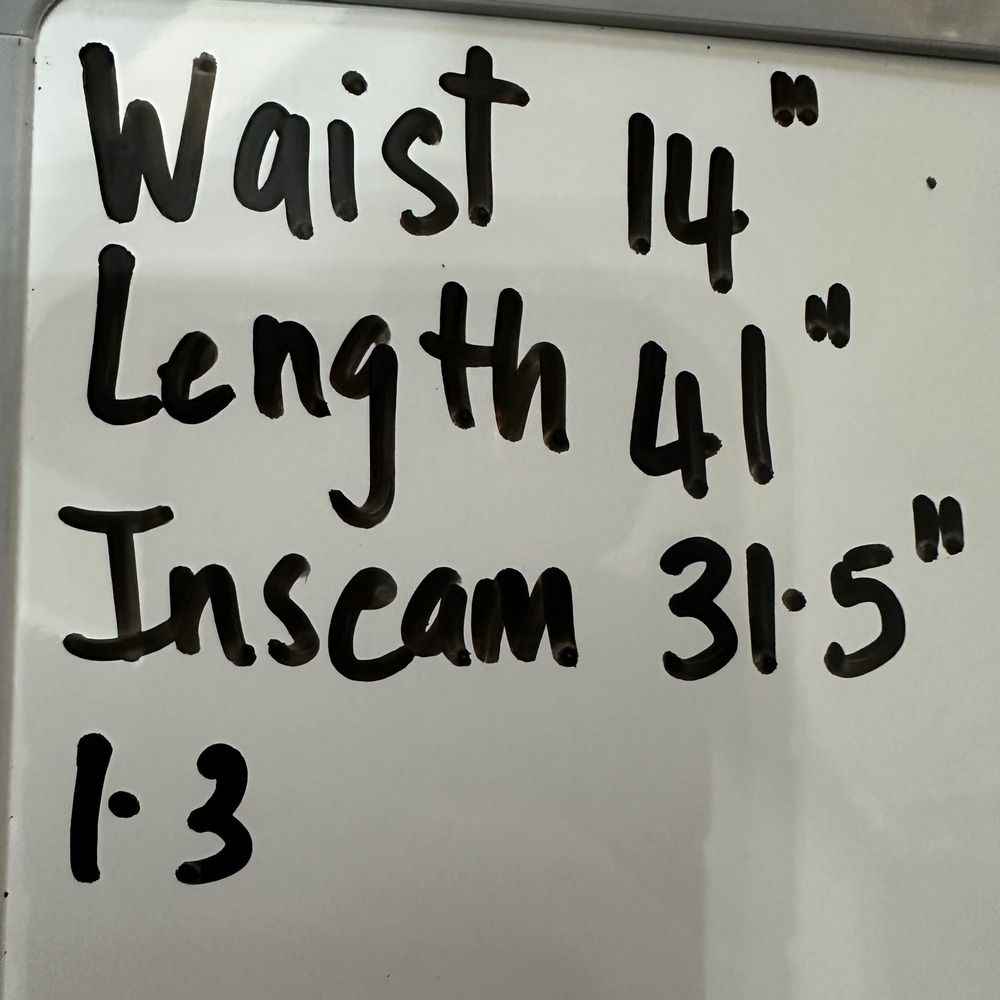 Waist 14"
Length 41"
Inseam 31.5"
1.3